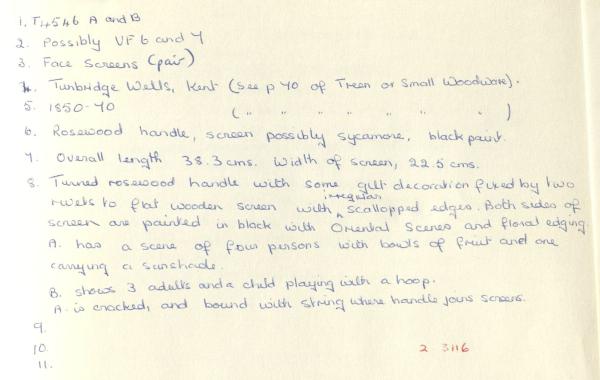 1. T4546 A and B
2. Possibly VF 6 and 7
3. Face Screens (pair)
4. Tunbridge Wells, Kent (See p 70 of Treen or Small Woodware).
5. 1850-70 ( " " " " " " " )
6. Rosewood handle, screen possibly sycamore, black paint.
7. Overall length 38.3 cms. Width of screen, 22.5 cms.
8. Turned rosewood handle with some gilt decoration fixed by two
rivets to flat wooden screen with irregular scallopped edges. Both sides of
screen are painted in black with Oriental Scenes and floral edging.
A. has a scene of four persons with bowls of fruit and one
carrying a sunshade.
B. shows 3 adults and a child playing with a hoop.
A. is cracked, and bound with string where handle joins screens.
9.
10.
11.
2 3116